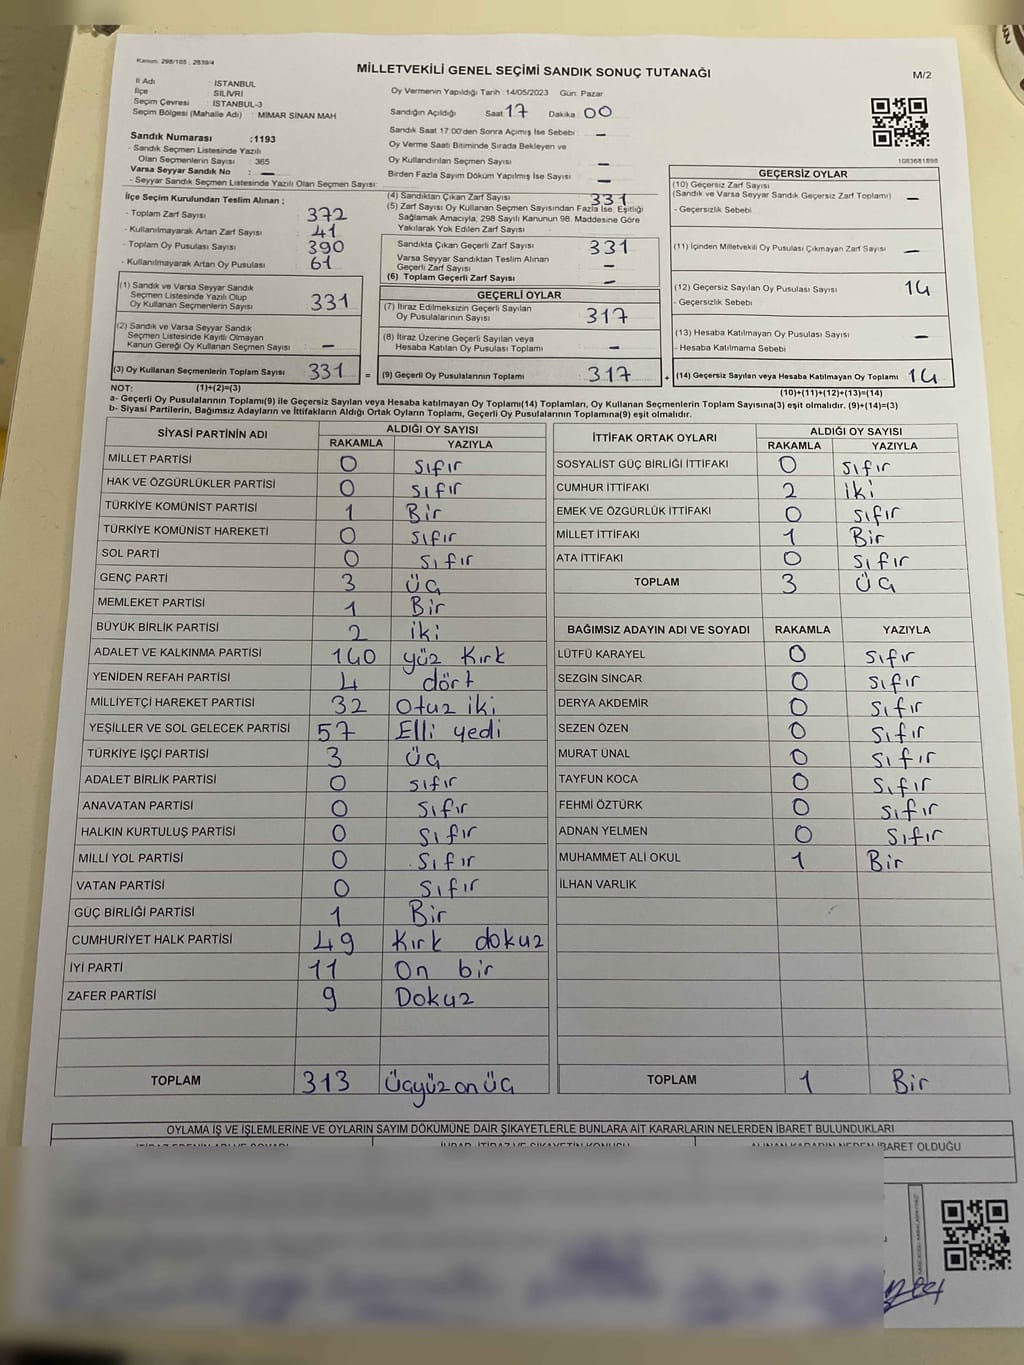 Kanun: 298/105 , 2839/4
MİLLETVEKİLİ GENEL SEÇİMİ SANDIK SONUÇ TUTANAĞI
M/2
İl Adı : İSTANBUL
İlçe : SİLİVRİ
Seçim Çevresi : İSTANBUL-3
Seçim Bölgesi (Mahalle Adı) : MİMAR SİNAN MAH
Sandık Numarası :1193
- Sandık Seçmen Listesinde Yazılı
Olan Seçmenlerin Sayısı : 365
Varsa Seyyar Sandık No : —
- Seyyar Sandık Seçmen Listesinde Yazılı Olan Seçmen Sayısı:
Oy Vermenin Yapıldığı Tarih :14/05/2023 Gün: Pazar
Sandığın Açıldığı Saat 17 Dakika 00
Sandık Saat 17:00'den Sonra Açımış İse Sebebi : —
Oy Verme Saati Bitiminde Sırada Bekleyen ve
Oy Kullandırılan Seçmen Sayısı : —
Birden Fazla Sayım Döküm Yapılmış İse Sayısı : —
1083681898
İlçe Seçim Kurulundan Teslim Alınan ;
- Toplam Zarf Sayısı : 372
- Kullanılmayarak Artan Zarf Sayısı : 41
- Toplam Oy Pusulası Sayısı : 390
- Kullanılmayarak Artan Oy Pusulası : 61
(1) Sandık ve Varsa Seyyar Sandık
Seçmen Listesinde Yazılı Olup
Oy Kullanan Seçmenlerin Sayısı : 331
(2) Sandık ve Varsa Seyyar Sandık
Seçmen Listesinde Kayıtlı Olmayan
Kanun Gereği Oy Kullanan Seçmen Sayısı : —
(3) Oy Kullanan Seçmenlerin Toplam Sayısı : 331 =
(4) Sandıktan Çıkan Zarf Sayısı : 331
(5) Zarf Sayısı Oy Kullanan Seçmen Sayısından Fazla İse, Eşitliği
Sağlamak Amacıyla; 298 Sayılı Kanunun 98. Maddesine Göre
Yakılarak Yok Edilen Zarf Sayısı :
Sandıkta Çıkan Geçerli Zarf Sayısı : 331
Varsa Seyyar Sandıktan Teslim Alınan
Geçerli Zarf Sayısı : —
(6) Toplam Geçerli Zarf Sayısı : —
GEÇERLİ OYLAR
(7) İtiraz Edilmeksizin Geçerli Sayılan
Oy Pusulalarının Sayısı : 317
(8) İtiraz Üzerine Geçerli Sayılan veya
Hesaba Katılan Oy Pusulası Toplamı : —
(9) Geçerli Oy Pusulalarının Toplamı : 317 +
GEÇERSİZ OYLAR
(10) Geçersiz Zarf Sayısı
(Sandık ve Varsa Seyyar Sandık Geçersiz Zarf Toplamı) : —
- Geçersizlik Sebebi :
(11) İçinden Milletvekili Oy Pusulası Çıkmayan Zarf Sayısı : —
(12) Geçersiz Sayılan Oy Pusulası Sayısı : 14
- Geçersizlik Sebebi :
(13) Hesaba Katılmayan Oy Pusulası Sayısı : —
- Hesaba Katılmama Sebebi :
(14) Geçersiz Sayılan veya Hesaba Katılmayan Oy Toplamı : 14
NOT: (1)+(2)=(3) (10)+(11)+(12)+(13)=(14)
a- Geçerli Oy Pusulalarının Toplamı(9) ile Geçersiz Sayılan veya Hesaba katılmayan Oy Toplamı(14) Toplamları, Oy Kullanan Seçmenlerin Toplam Sayısına(3) eşit olmalıdır. (9)+(14)=(3)
b- Siyasi Partilerin, Bağımsız Adayların ve İttifakların Aldığı Ortak Oyların Toplamı, Geçerli Oy Pusulalarının Toplamına(9) eşit olmalıdır.
SİYASİ PARTİNİN ADI ALDIĞI OY SAYISI
RAKAMLA YAZIYLA
MİLLET PARTİSİ 0 sıfır
HAK VE ÖZGÜRLÜKLER PARTİSİ 0 sıfır
TÜRKİYE KOMÜNİST PARTİSİ 1 Bir
TÜRKİYE KOMÜNİST HAREKETİ 0 sıfır
SOL PARTİ 0 sıfır
GENÇ PARTİ 3 üç
MEMLEKET PARTİSİ 1 Bir
BÜYÜK BİRLİK PARTİSİ 2 iki
ADALET VE KALKINMA PARTİSİ 140 yüz kırk
YENİDEN REFAH PARTİSİ 4 dört
MİLLİYETÇİ HAREKET PARTİSİ 32 Otuz iki
YEŞİLLER VE SOL GELECEK PARTİSİ 57 Elli yedi
TÜRKİYE İŞÇİ PARTİSİ 3 üç
ADALET BİRLİK PARTİSİ 0 sıfır
ANAVATAN PARTİSİ 0 sıfır
HALKIN KURTULUŞ PARTİSİ 0 sıfır
MİLLİ YOL PARTİSİ 0 sıfır
VATAN PARTİSİ 0 sıfır
GÜÇ BİRLİĞİ PARTİSİ 1 Bir
CUMHURİYET HALK PARTİSİ 49 Kırk dokuz
İYİ PARTİ 11 On bir
ZAFER PARTİSİ 9 Dokuz
TOPLAM 313 Üçyüz on üç
İTTİFAK ORTAK OYLARI ALDIĞI OY SAYISI
RAKAMLA YAZIYLA
SOSYALİST GÜÇ BİRLİĞİ İTTİFAKI 0 sıfır
CUMHUR İTTİFAKI 2 iki
EMEK VE ÖZGÜRLÜK İTTİFAKI 0 sıfır
MİLLET İTTİFAKI 1 Bir
ATA İTTİFAKI 0 sıfır
TOPLAM 3 üç
BAĞIMSIZ ADAYIN ADI VE SOYADI RAKAMLA YAZIYLA
LÜTFÜ KARAYEL 0 sıfır
SEZGİN SİNCAR 0 sıfır
DERYA AKDEMİR 0 sıfır
SEZEN ÖZEN 0 sıfır
MURAT ÜNAL 0 sıfır
TAYFUN KOCA 0 sıfır
FEHMİ ÖZTÜRK 0 sıfır
ADNAN YELMEN 0 sıfır
MUHAMMET ALİ OKUL 1 Bir
İLHAN VARLIK
TOPLAM 1 Bir
OYLAMA İŞ VE İŞLEMLERİNE VE OYLARIN SAYIM DÖKÜMÜNE DAİR ŞİKAYETLERLE BUNLARA AİT KARARLARIN NELERDEN İBARET BULUNDUKLARI
İTİRAZ EDENİN ADI VE SOYADI İHBAR, İTİRAZ VE ŞİKAYETİN KONUSU ALINAN KARARIN NEDEN İBARET OLDUĞU